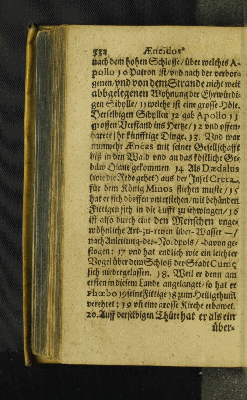 532 Æneidos
nach dem hohen Schlosse / über welches A-
pollo 10 Patron ist / und nach der verbor-
genen / und von dem Strande nicht weit
abbgelegenen Wohnung der Ehrwürdi-
gen Sibylle / 11 welche ist eine grosse Höle.
Derselbigen Sibyllen 12 gab Apollo 11
grossen Verstand ins Hertze / 12 und offen-
barete jhr künfftige Dinge. 13. Und war
nunmehr Æneas mit seiner Gesellschafft
biß in den Wald und an das köstliche Ge-
bäu Dianæ gekommen 14. Als Dædalus
(wie die Rede gehet) aus der Insel Creta
für dem König Minos fliehen muste / 15
hat er sich dörffen unterstehen / mit behänden
Fittigen sich in die Lufft zu schwingen / 16
ist also durch eine den Menschen unge-
wöhnliche Art-zu-reisen über-Wasser
nach Anleitung-des-Nordpols / davon ge-
flogen: 17 und hat endlich wie ein leichter
Vogel über dem Schloß der Stadt Cumæ
sich niedergelassen. 18. Weil er denn am
ersten in diesem Lande angelanget / so hat er
Phœbo 19 seine Fittige 18 zum Heiligthum
verehret: 19 uñ eine grosse Kirche erbawet.
20. Auff derselbigen Thüre hat er als ein
über-